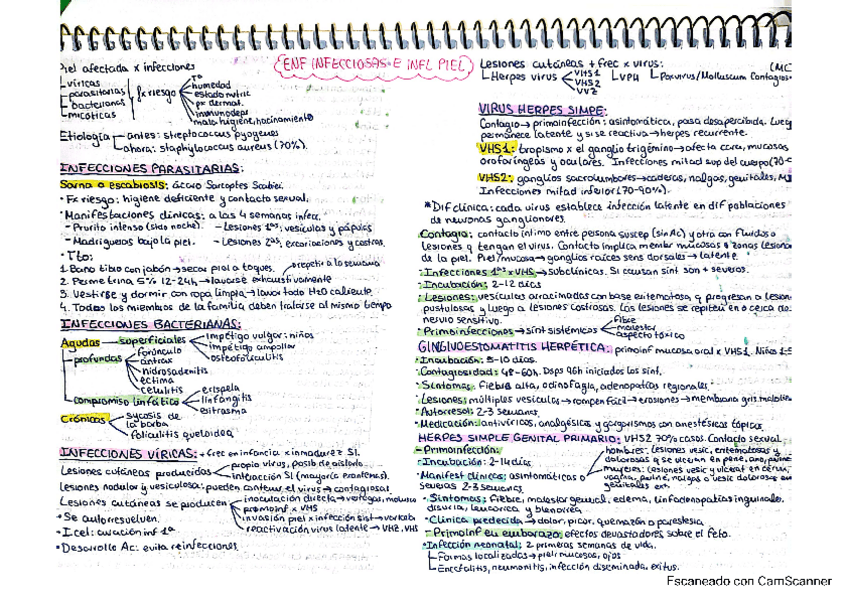 ENF INFECCIOSAS E INFL PIEL
Piel afectada x infecciones
víricas
parasitarias
bacterianas
micóticas
fx riesgo
Tª
humedad
estado nutric
px dermat.
inmunodepr
mala higiene, hacinamiento
Etiología
antes: streptococcus pyogenes
ahora: staphylococcus aureus (70%).
INFECCIONES PARASITARIAS:
Sarna o escabiosis: ácaro Sarcoptes Scabiei
• Fx riesgo: higiene deficiente y contacto sexual.
• Manifestaciones clínicas: a las 4 semanas infecc.
- Prurito intenso (sito noche) - Lesiones 1as: vesículas y pápulas
- Madrigueras bajo la piel. - Lesiones 2as: excoriaciones y costras.
• Tto: repetir a la semana
1. Baño tibio con jabón → secar piel a toques.
2. Permetrina 5% 12-24h → lavarse exhaustivamente
3. Vestirse y dormir con ropa limpia → lavar todo H2O caliente.
4. Todos los miembros de la familia deben tratarse al mismo tiempo
INFECCIONES BACTERIANAS:
Agudas superficiales
impétigo vulgar: niños
impétigo ampollar
osteofoliculitis
profundas
forúnculo
antrax
hidrosadenitis
ectima
celulitis
compromiso linfático
erisipela
linfangitis
eritrasma
Crónicas
sycosis de la barba
foliculitis queloidea
INFECCIONES VÍRICAS: + frec en infancia x inmadurez SI.
Lesiones cutáneas producidas
propio virus, posib de aislarlo
interacción SI (mayoría exantems).
Lesiones nodular y vesiculosa: pueden contener el virus → contagiosa!
Lesiones cutáneas se producen
inoculación directa → verrugas, molusco
primoinf x VHS
invasión piel x infección sist → varicela
reactivación virus latente → VHZ, VHS
• Se autorresuelven.
• I cel: curación inf 1ª
• Desarrollo Ac: evita reinfecciones.
Lesiones cutáneas + frec x virus:
Herpes virus
VHS1
VHS2
VVZ
VPH
Poxvirus/Molluscum Contagios
(MC
VIRUS HERPES SIMPE:
Contagio → primoinfección: asintomática, pasa desapercibida. Lueg
permanece latente y si se reactiva → herpes recurrente.
VHS1: tropismo x el ganglio trigémino → afecta cara, mucosas
orofaríngeas y oculares. Infecciones mitad sup del cuerpo (70-
VHS2: ganglios sacrolumbares → caderas, nalgas, genitales, MI
Infecciones mitad inferior (70-90%).
* Dif clínica: cada virus establece infección latente en dif poblaciones
de neuronas ganglionares.
Contagio: contacto íntimo entre persona suscep (sin Ac) y otra con fluidos o
lesiones q tengan el virus. Contacto implica membr mucosas o zonas lesiona
de la piel. Piel/mucosa → ganglios raíces sens dorsales → latente.
• Infecciones 1as x VHS → subclínicas. Si causan sint son + severos.
• Incubación: 2-12 días
• Lesiones: vesículas arracimadas con base eritematosa, q progresan a lesion
pustulosas y luego a lesiones costrosas. Las lesiones se repiten en o cerca de
nervio sensitivo.
• Primoinfecciones → sint sistémicos
fibre
malestar
aspecto tóxico
GINGIVOESTOMATITIS HERPÉTICA: primoinf mucosa oral x VHS1. Niños 1-5
• Incubación: 5-10 días.
• Contagiosidad: 48-60h. Dsps 96h iniciados los sint.
• Síntomas: fiebre alta, odinofagia, adenopatías regionales.
• Lesiones: múltiples vesículas → rompen fácil → erosiones → membrana gris
• Autorresol: 2-3 semanas.
• Medicación: antivíricos, analgésicos y gargarismos con anestésicos tópicos.
HERPES SIMPLE GENITAL PRIMARIO: VHS2 70% casos. Contacto sexual.
- Primoinfección:
• Incubación: 2-14 días.
• Manifest clínicas: asintomáticos o
severas 2-3 semanas.
hombres: lesiones vesic, eritematosas y
dolorosas q se ulceran en pene, ano,
mujeres: lesiones vesic y ulcerat en cérvix,
vagina, pubis, nalgas o vesic dolorosas en
genitales ext.
• Síntomas: fiebre, malestar general, edema, linfadenopatías inguinales.
disuria, leucorrea y blenorrea.
• Clínica predecida → dolor, picor, quemazón o parestesia.
- Primoinf en embarazo: efectos devastadores sobre el feto.
• Infección neonatal: 2 primeras semanas de vida.
Formas localizadas → piel, mucosas, ojos
Encefalitis, neumonitis, infección diseminada, exitus.
Escaneado con CamScanner